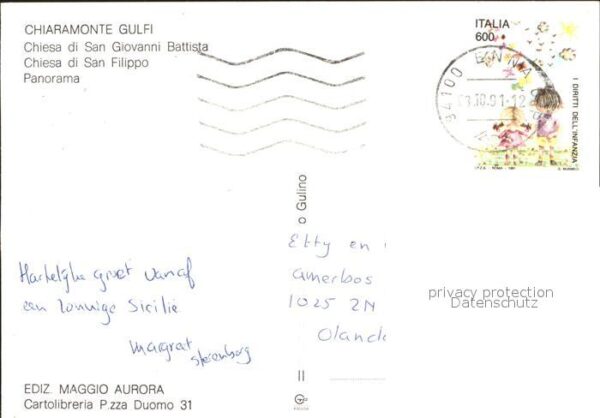 CHIARAMONTE GULFI
Chiesa di San Giovanni Battista
Chiesa di San Filippo
Panorama
ITALIA
600
94100 ENNA
10.91-12
I DIRITTI DELL'INFANZIA
I.P.Z.S. - ROMA - 1991
o Gulino
Hartelijke groet vanaf
een zonnige Sicilië
Margreet
Etty en
Amerbos
1025 ZN
Olanda
privacy protection
Datenschutz
EDIZ. MAGGIO AURORA
Cartolibreria P.zza Duomo 31